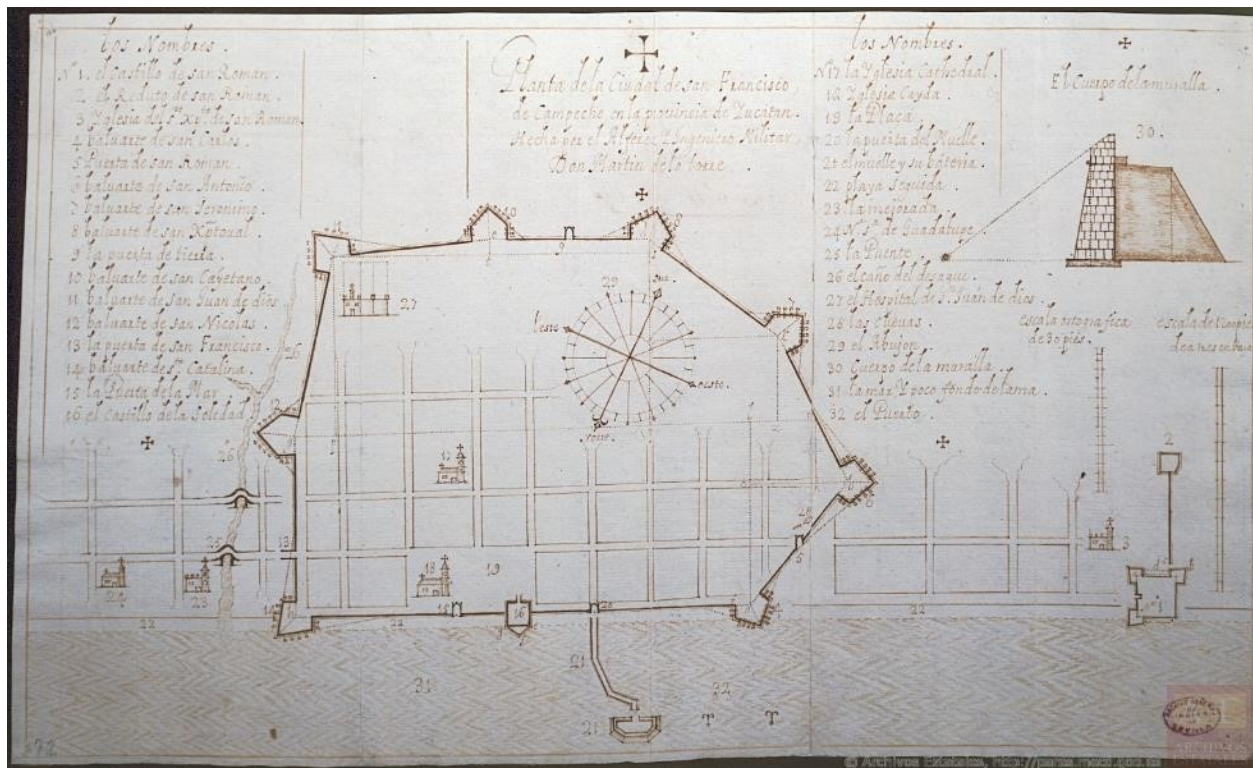 los Nombres.
Nº 1. el Castillo de san Roman.
2 el Reduto de san Roman.
3 Yglesia del sto Xpto de san Roman.
4 baluarte de san Carlos.
5 Puerta de san Roman.
6 baluarte de san Antonio.
7 baluarte de san Jeronimo.
8 baluarte de san Xptoual.
9 la puerta de tierra.
10 baluarte de san Cayetano.
11 baluarte de san Juan de dios.
12 baluarte de san Nicolas.
13 la puerta de san Francisco.
14 baluarte de sta Catalina.
15 la Puerta de la Mar
16 el Castillo de la Soledad
Planta de la Ciudad de san Francisco,
de Campeche en la provincia de Yucatan.
Hecha por el Alferez Y Ingeniero Militar,
Don Martin de la torre.
los Nombres.
Nº 17 la Yglesia Cathedral.
18 Yglesia Cayda.
19 la Plaça.
20 la puerta del Muelle.
21 el muelle y su bateria.
22 playa seguida.
23 la mejorada.
24 N. Sª de Guadalupe.
25 la Puente.
26 el caño del desague.
27 el Hospital de sn Juan de dios.
28 las cuevas.
29 el Abujon.
30 Cuerpo de la muralla.
31 la mar Y poco fondo de lama.
32 el Puerto.
El Cuerpo de la muralla.
30.
escala ortografica
de 30 pies.
escala de
de a tres en bara
11
10
9
8
27
29
sur.
leste
oeste.
norte.
7
26
12
17
6
26
28
2
25
13
5
3
24
23
18
19
14
15
16
20
4
22
1
22
22
31
21
32
21
72
ARCHIVO GENERAL DE INDIAS SEVILLA
© Archivos Estatales, http://pares.mecd.gob.es